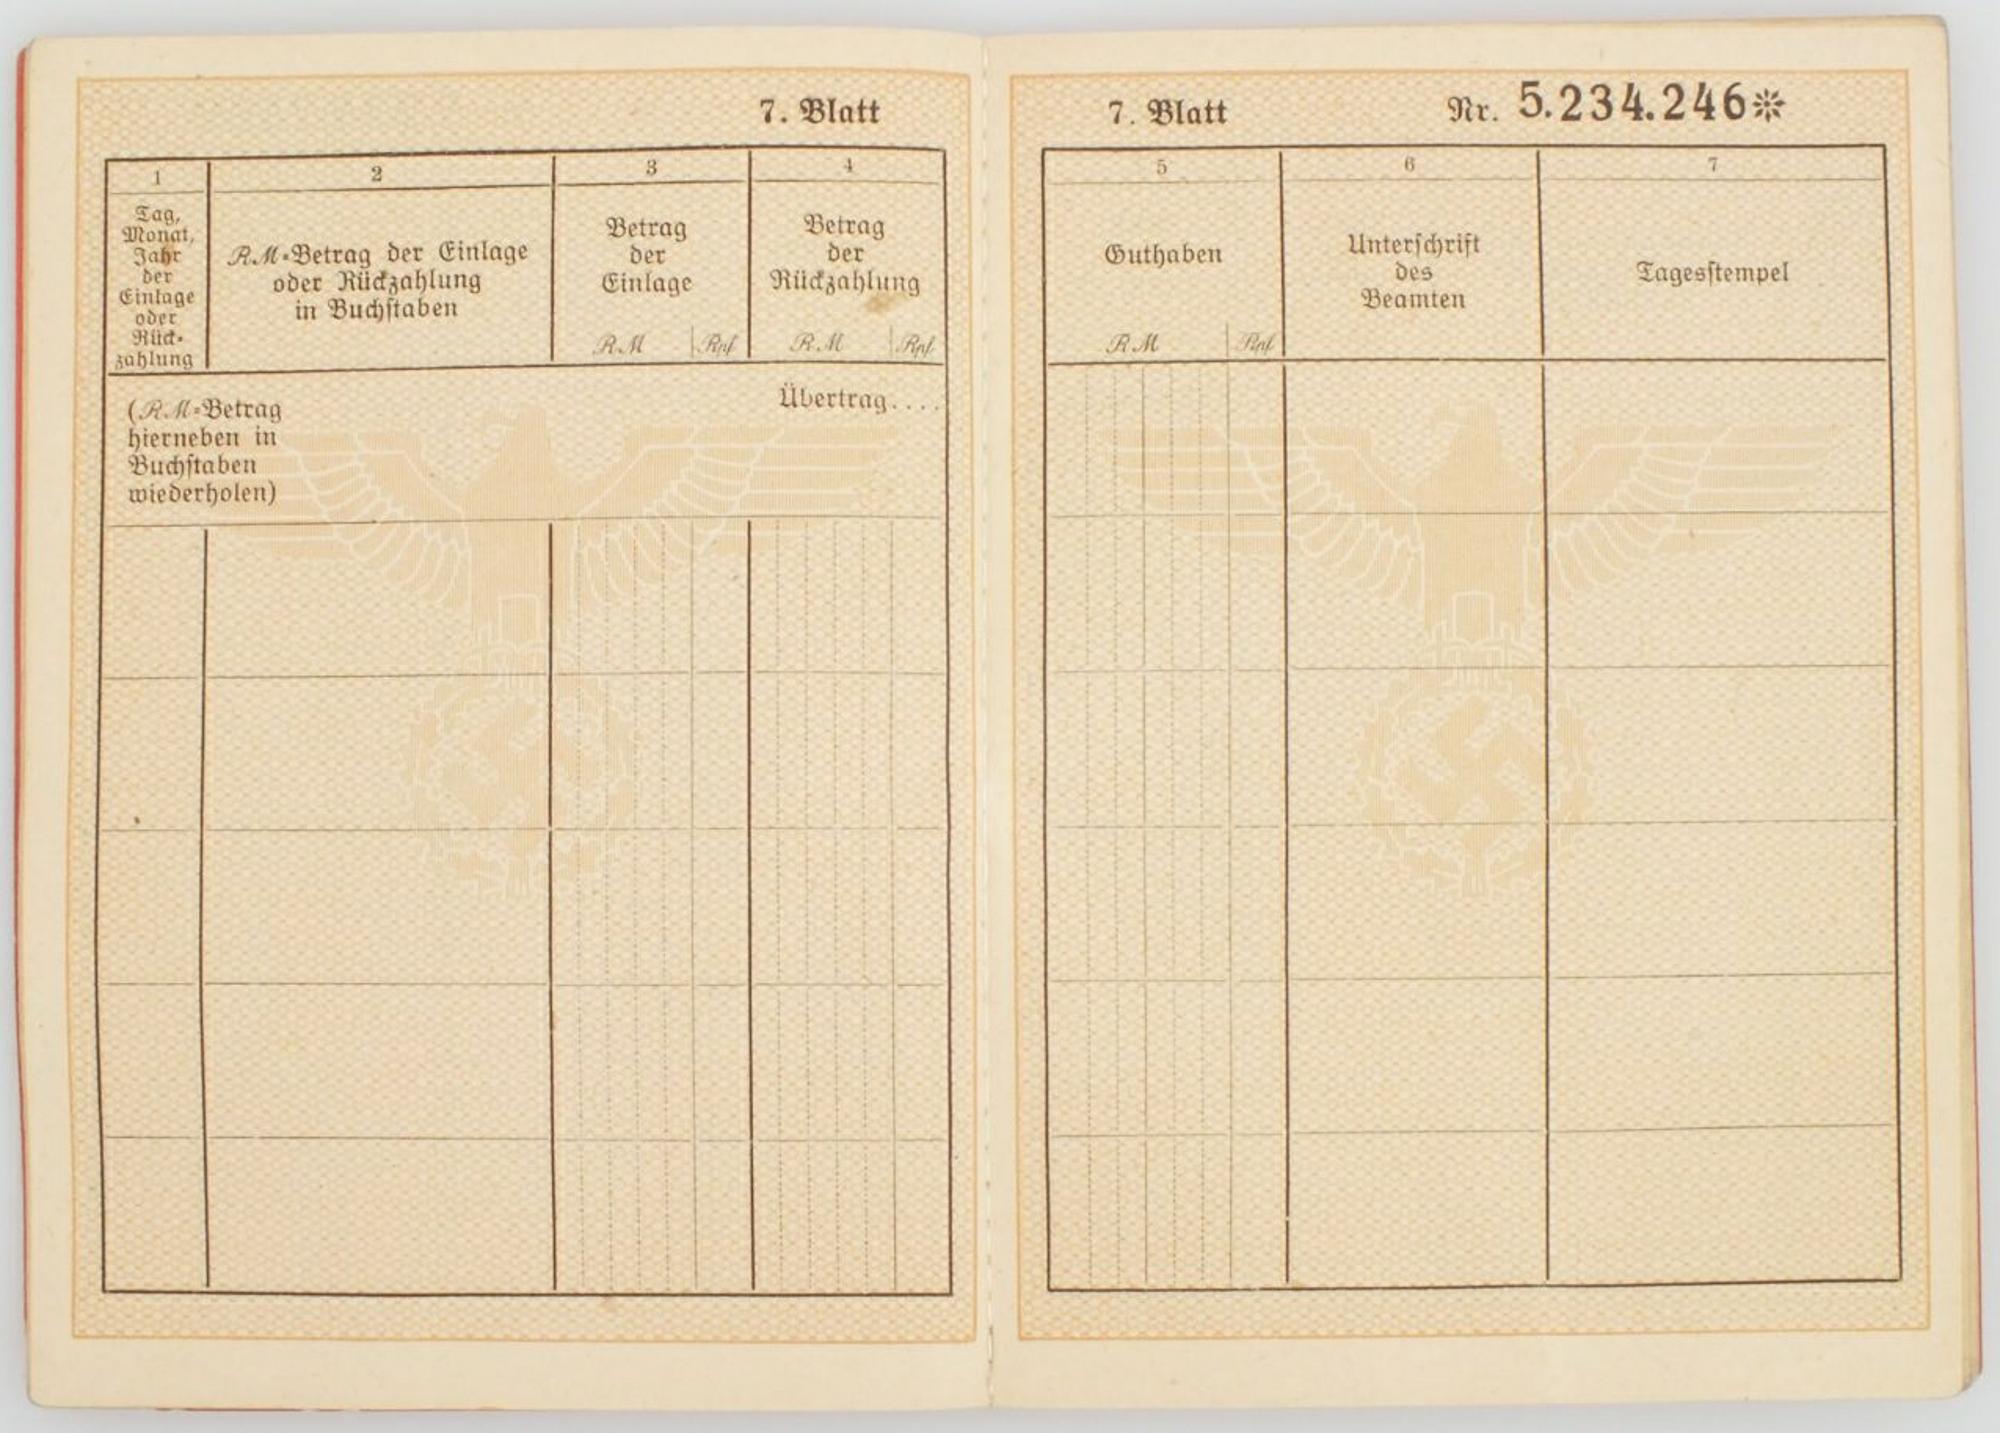 7. Blatt
1
2
3
4
Tag,
Monat,
Jahr
der
Einlage
oder
Rück-
zahlung
RM-Betrag der Einlage
oder Rückzahlung
in Buchstaben
Betrag
der
Einlage
RM Rpf
Betrag
der
Rückzahlung
RM Rpf
(RM-Betrag
hierneben in
Buchstaben
wiederholen)
Übertrag....
7. Blatt
Nr. 5.234.246
5
6
7
Guthaben
RM Rpf
Unterschrift
des
Beamten
Tagesstempel